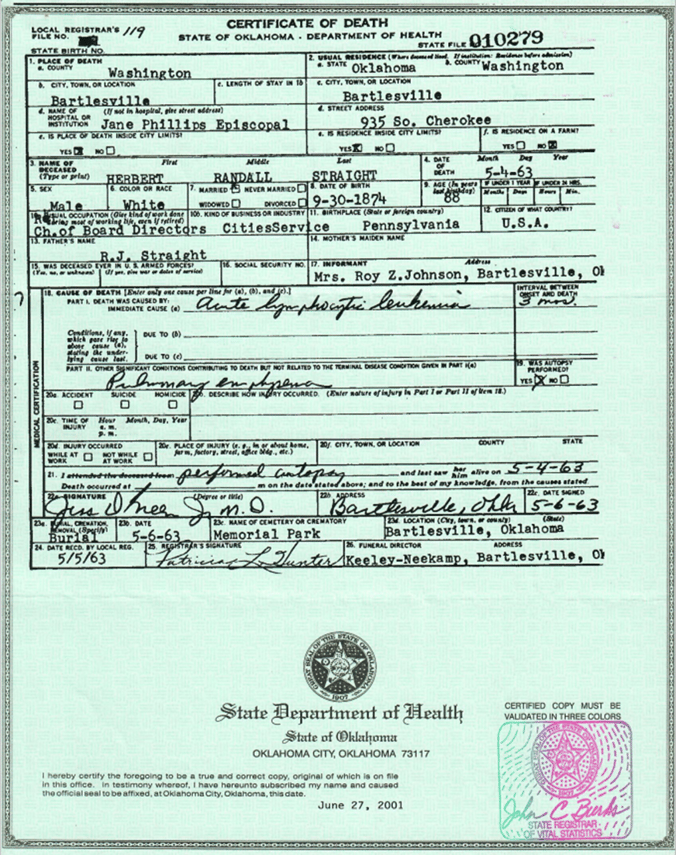 CERTIFICATE OF DEATH
LOCAL REGISTRAR'S 119
FILE NO.
STATE OF OKLAHOMA - DEPARTMENT OF HEALTH
STATE BIRTH NO.
STATE FILE 010279
1. PLACE OF DEATH
a. COUNTY Washington
2. USUAL RESIDENCE (Where deceased lived. If institution: Residence before admission)
a. STATE Oklahoma b. COUNTY Washington
b. CITY, TOWN, OR LOCATION
Bartlesville
c. LENGTH OF STAY IN 1b
c. CITY, TOWN, OR LOCATION
Bartlesville
d. NAME OF HOSPITAL OR INSTITUTION (If not in hospital, give street address)
Jane Phillips Episcopal
d. STREET ADDRESS
935 So. Cherokee
e. IS PLACE OF DEATH INSIDE CITY LIMITS?
YES X NO
e. IS RESIDENCE INSIDE CITY LIMITS?
YES X NO
f. IS RESIDENCE ON A FARM?
YES NO X
3. NAME OF DECEASED (Type or print)
First Middle Last
HERBERT RANDALL STRAIGHT
4. DATE OF DEATH Month Day Year
5-4-63
5. SEX
Male
6. COLOR OR RACE
White
7. MARRIED X NEVER MARRIED
WIDOWED DIVORCED
8. DATE OF BIRTH
9-30-1874
9. AGE (In years last birthday)
88
IF UNDER 1 YEAR IF UNDER 24 HRS.
Months Days Hours Min.
10a. USUAL OCCUPATION (Give kind of work done during most of working life, even if retired)
Ch.of Board Directors
10b. KIND OF BUSINESS OR INDUSTRY
CitiesService
11. BIRTHPLACE (State or foreign country)
Pennsylvania
12. CITIZEN OF WHAT COUNTRY?
U.S.A.
13. FATHER'S NAME
R.J. Straight
14. MOTHER'S MAIDEN NAME
15. WAS DECEASED EVER IN U.S. ARMED FORCES?
(Yes, no, or unknown) (If yes, give war or dates of service)
16. SOCIAL SECURITY NO.
17. INFORMANT Address
Mrs. Roy Z.Johnson, Bartlesville, Ok
MEDICAL CERTIFICATION
18. CAUSE OF DEATH [Enter only one cause per line for (a), (b), and (c).]
PART I. DEATH WAS CAUSED BY:
IMMEDIATE CAUSE (a) Acute lymphocytic leukemia
INTERVAL BETWEEN ONSET AND DEATH
3 mos.
Conditions, if any, which gave rise to above cause (a), stating the underlying cause last.
DUE TO (b)
DUE TO (c)
PART II. OTHER SIGNIFICANT CONDITIONS CONTRIBUTING TO DEATH BUT NOT RELATED TO THE TERMINAL DISEASE CONDITION GIVEN IN PART I(a)
Pulmonary emphysema
19. WAS AUTOPSY PERFORMED?
YES X NO
20a. ACCIDENT SUICIDE HOMICIDE
20b. DESCRIBE HOW INJURY OCCURRED. (Enter nature of injury in Part I or Part II of item 18.)
20c. TIME OF INJURY Hour Month, Day, Year
a. m.
p. m.
20d. INJURY OCCURRED
WHILE AT WORK NOT WHILE AT WORK
20e. PLACE OF INJURY (e. g., in or about home, farm, factory, street, office bldg., etc.)
20f. CITY, TOWN, OR LOCATION COUNTY STATE
21. I attended the deceased from performed autopsy and last saw her him alive on 5-4-63
Death occurred at m on the date stated above; and to the best of my knowledge, from the causes stated
22a. SIGNATURE (Degree or title)
Jr. M.D.
22b. ADDRESS
Bartlesville, Okla
22c. DATE SIGNED
5-6-63
23a. BURIAL, CREMATION, REMOVAL (Specify)
Burial
23b. DATE
5-6-63
23c. NAME OF CEMETERY OR CREMATORY
Memorial Park
23d. LOCATION (City, town, or county) (State)
Bartlesville, Oklahoma
24. DATE RECD. BY LOCAL REG.
5/5/63
25. REGISTRAR'S SIGNATURE
Patricia L. Hunter
26. FUNERAL DIRECTOR ADDRESS
Keeley-Neekamp, Bartlesville, Ok
GREAT SEAL OF THE STATE OF OKLAHOMA
1907
State Department of Health
State of Oklahoma
OKLAHOMA CITY, OKLAHOMA 73117
CERTIFIED COPY MUST BE
VALIDATED IN THREE COLORS
I hereby certify the foregoing to be a true and correct copy, original of which is on file
in this office. In testimony whereof, I have hereunto subscribed my name and caused
the official seal to be affixed, at Oklahoma City, Oklahoma, this date.
June 27, 2001
John C Burks
STATE REGISTRAR
OF VITAL STATISTICS